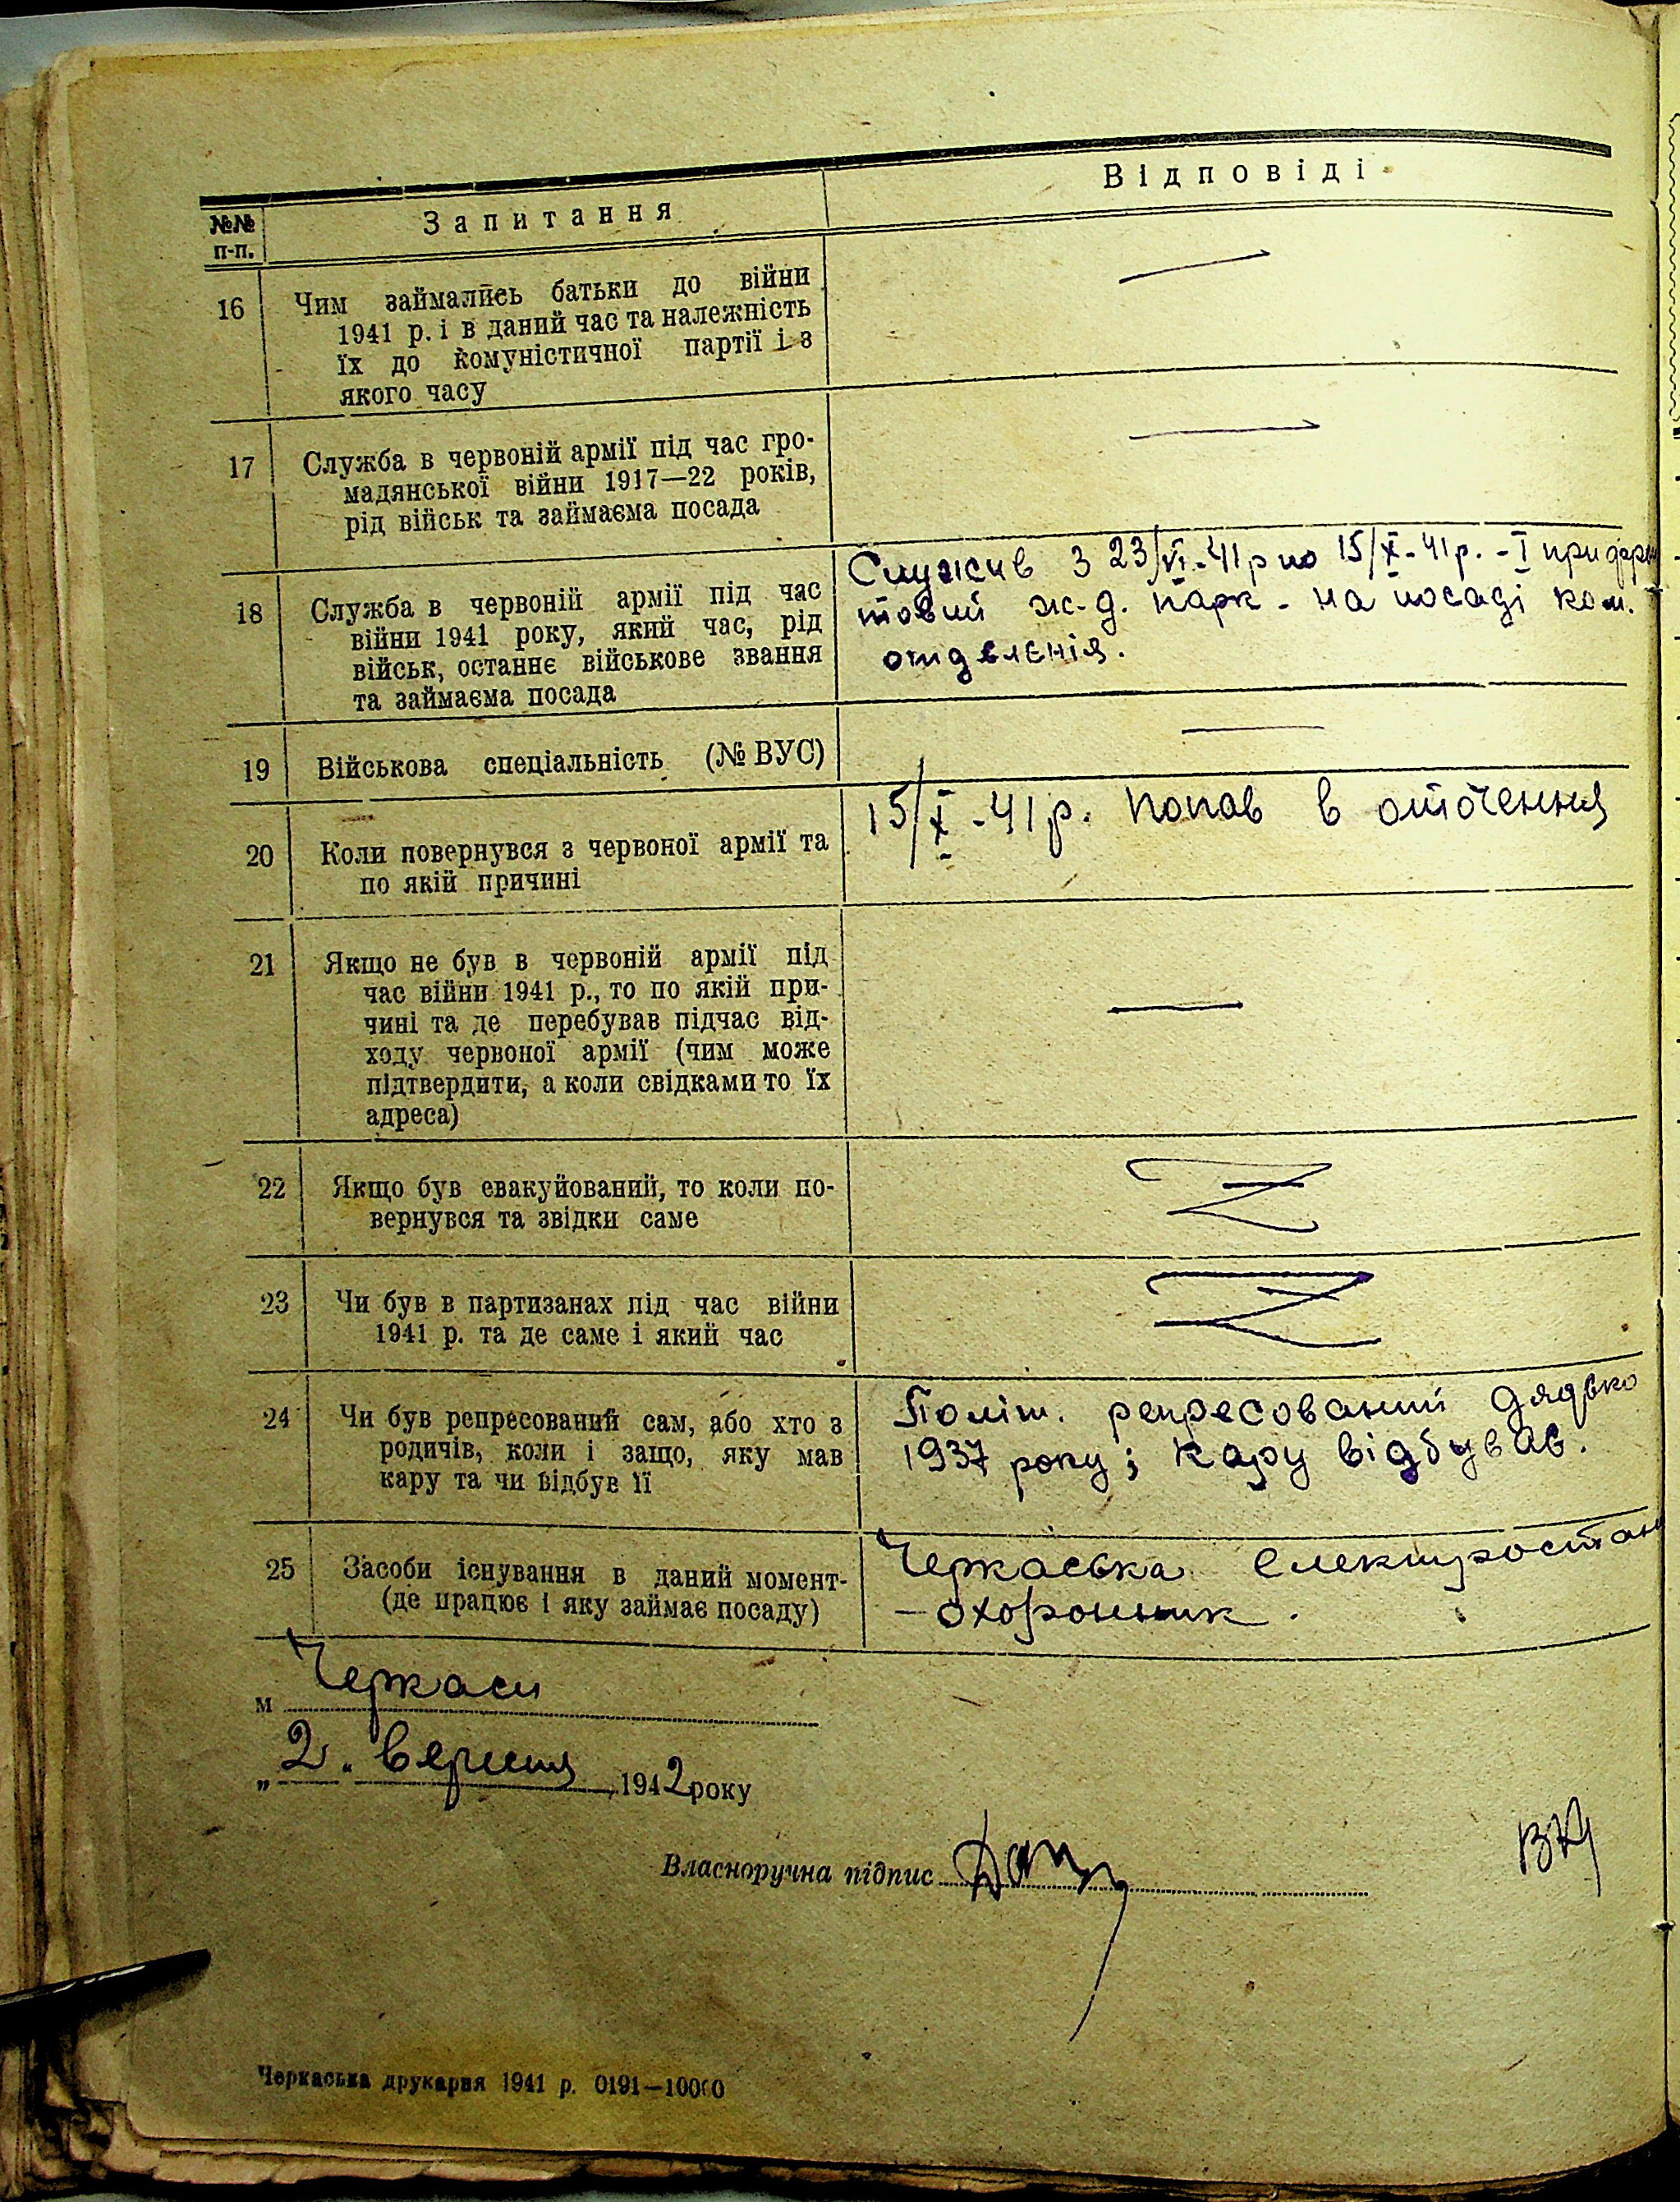 Відповіді
№№ Запитання
п-п.
16 Чим займались батьки до війни
1941 р. і в даний час та належність
їх до комуністичної партії і з
якого часу
17 Служба в червоній армії під час гро-
мадянської війни 1917—22 років,
рід військ та займаєма посада
18 Служба в червоній армії під час
війни 1941 року, який час, рід
військ, останнє військове звання
та займаєма посада
Служив з 23/VI-41р по 15/X-41р. - I
ж-д. парк - на посаді ком.
отделенія.
19 Військова спеціальність (№ ВУС)
20 Коли повернувся з червоної армії та
по якій причині
15/X-41р. попав в оточення
21 Якщо не був в червоній армії під
час війни 1941 р., то по якій при-
чині та де перебував підчас від-
ходу червоної армії (чим може
підтвердити, а коли свідками то їх
адреса)
22 Якщо був евакуйований, то коли по-
вернувся та звідки саме
23 Чи був в партизанах під час війни
1941 р. та де саме і який час
24 Чи був репресований сам, або хто з
родичів, коли і защо, яку мав
кару та чи відбув її
Політ. репресований дядько
1937 року; кару відбував.
25 Засоби існування в даний момент-
(де працює і яку займає посаду)
Черкаська електростан
- охоронник.
м Черкаси
„2" вересня 1942 року
Власноручна підпис
Черкаська друкарня 1941 р. 0191—10000